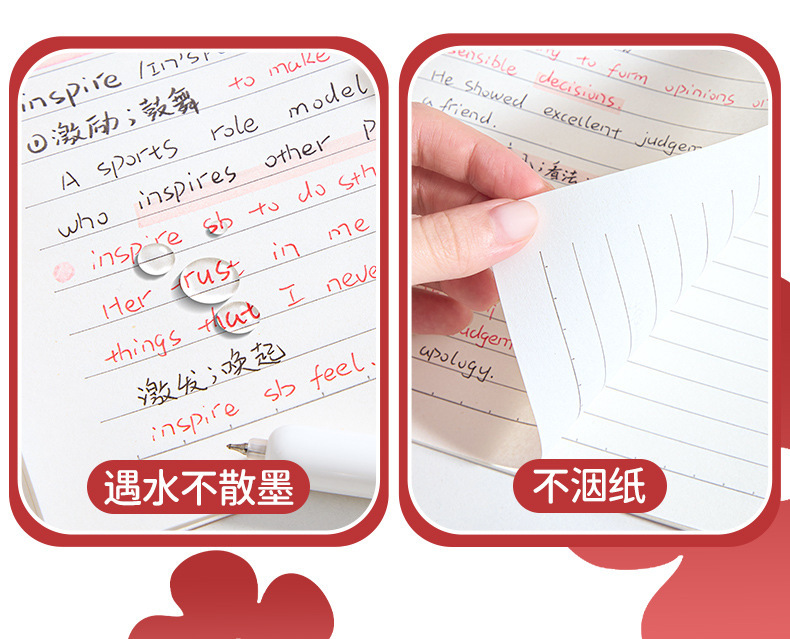 inspire /In'sp
①激励；鼓舞 to make
A sports role model
who inspires other p
inspire sb to do sth
Her trust in me
things that I never
激发；唤起
inspire sb feel.
遇水不散墨
sensible decisions.
to form opinions or
He showed excellent judgem
a friend.
看法
udgem
apology.
不洇纸